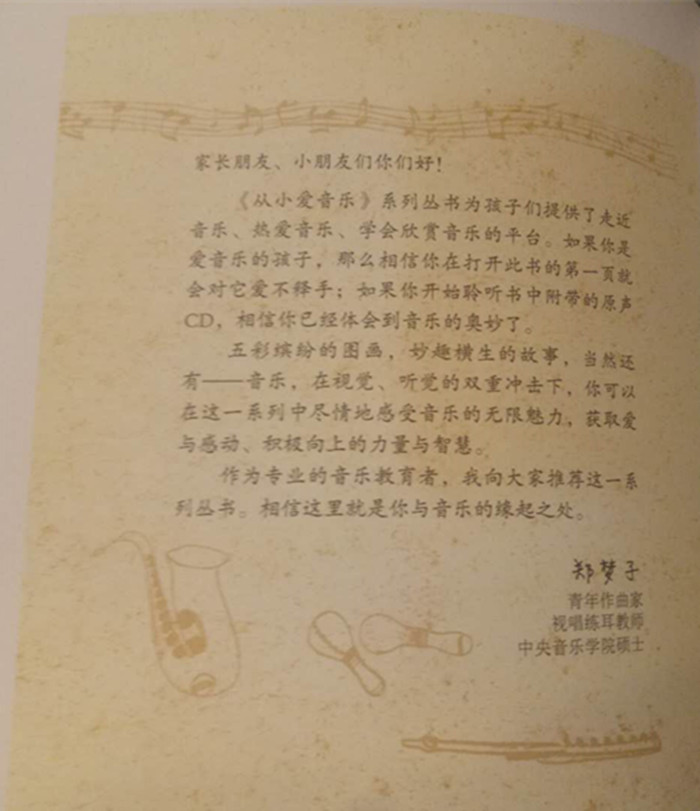 家长朋友、小朋友们你们好！
《从小爱音乐》系列丛书为孩子们提供了走近
音乐、热爱音乐、学会欣赏音乐的平台。如果你是
爱音乐的孩子，那么相信你在打开此书的第一页就
会对它爱不释手；如果你开始聆听书中附带的原声
CD，相信你已经体会到音乐的奥妙了。
五彩缤纷的图画，妙趣横生的故事，当然还
有——音乐，在视觉、听觉的双重冲击下，你可以
在这一系列中尽情地感受音乐的无限魅力，获取爱
与感动、积极向上的力量与智慧。
作为专业的音乐教育者，我向大家推荐这一系
列丛书。相信这里就是你与音乐的缘起之处。
郑梦子
青年作曲家
视唱练耳教师
中央音乐学院硕士